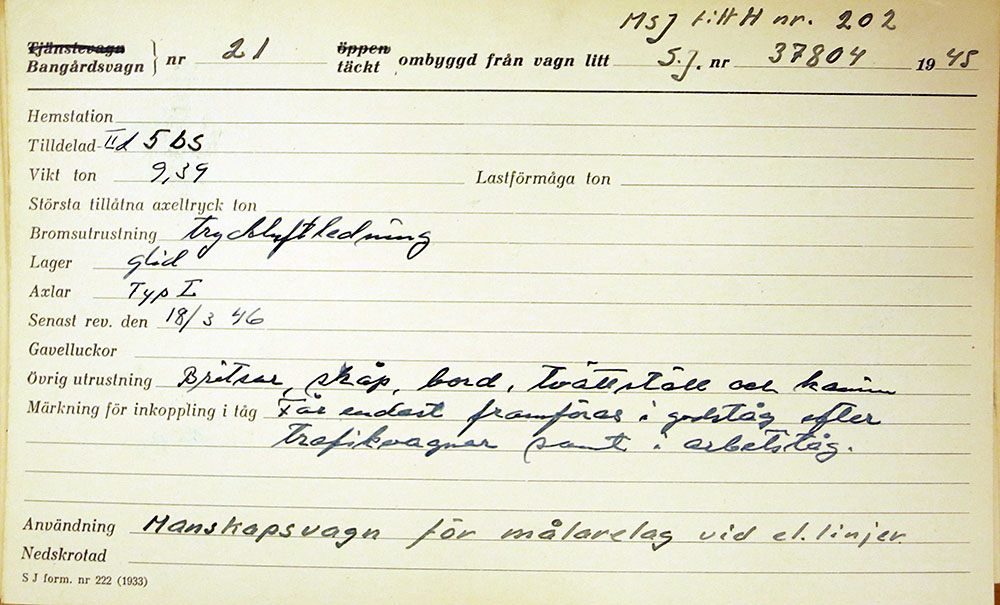 MSJ litt H nr. 202
Tjänstevagn
Bangårdsvagn } nr 21 öppen täckt ombyggd från vagn litt S.J. nr 37804 1945
Hemstation
Tilldelad IId 5 bs
Vikt ton 9,39 Lastförmåga ton
Största tillåtna axeltryck ton
Bromsutrustning tryckluftledning
Lager glid
Axlar Typ I
Senast rev. den 18/3 46
Gavelluckor
Övrig utrustning Britsar, skåp, bord, tvättställ och kamin
Märkning för inkoppling i tåg Får endast framföras i godståg efter
trafikvagnar samt i arbetståg.
Användning Manskapsvagn för målarelag vid el. linjer
Nedskrotad
S J form. nr 222 (1933)